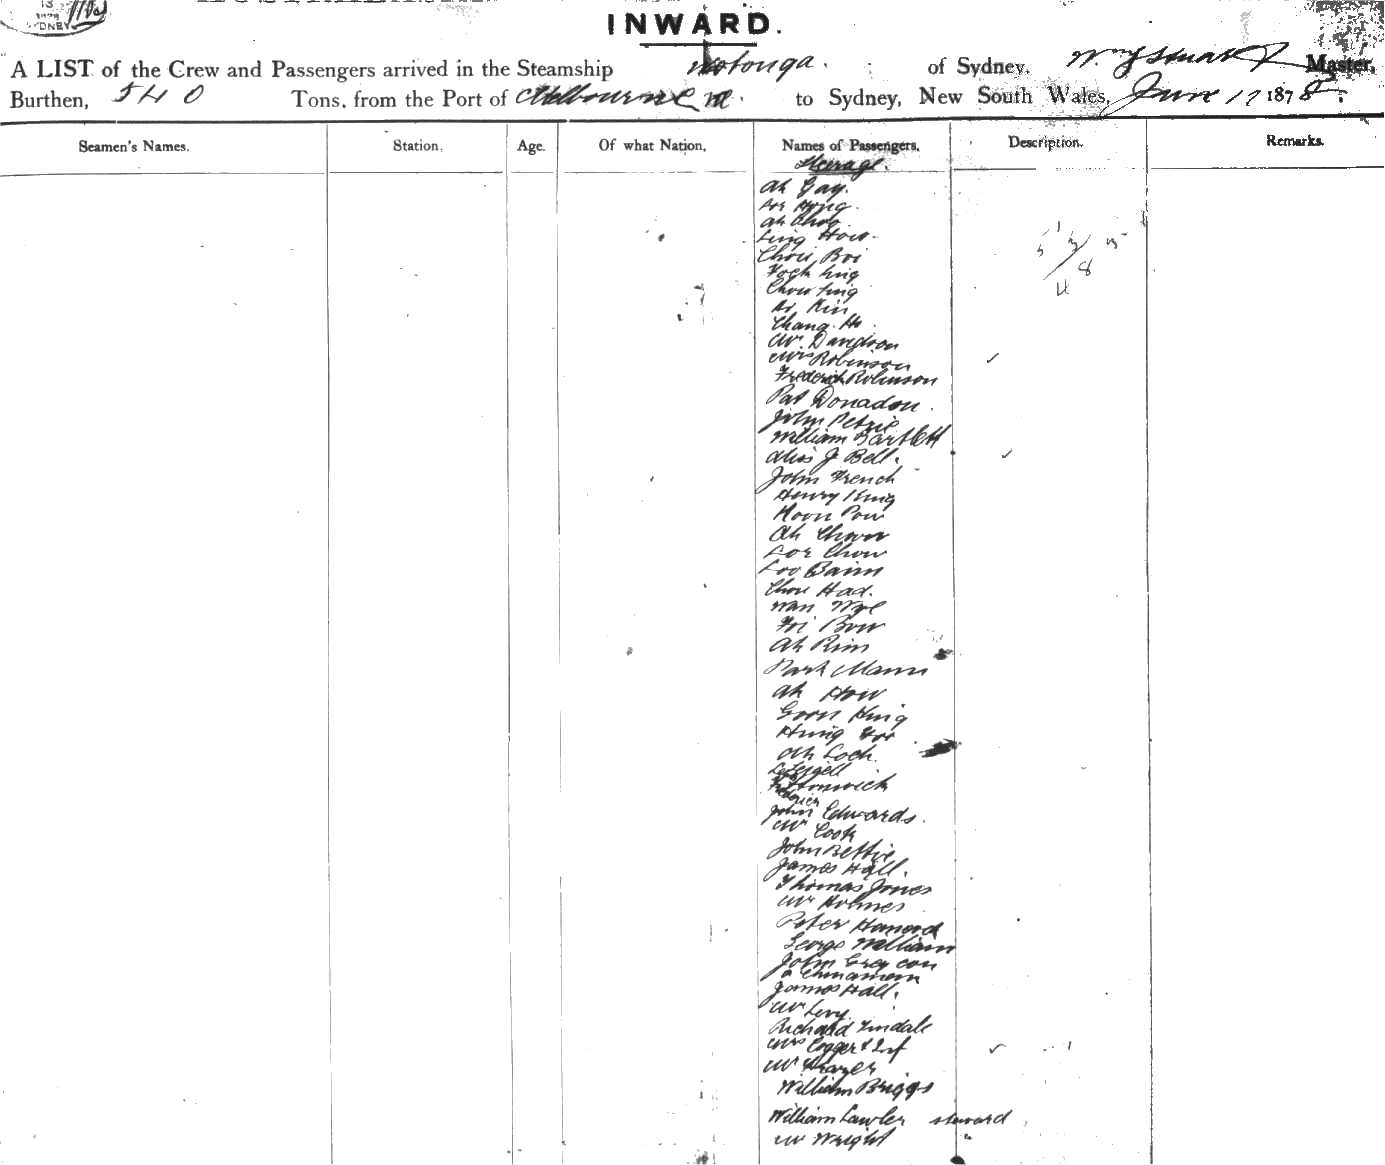 SYDNEY
INWARD.
A LIST of the Crew and Passengers arrived in the Steamship Wotonga. of Sydney, Master,
Burthen, 540 Tons, from the Port of Melbourne to Sydney, New South Wales, June 17 1878
Seamen's Names. Station. Age. Of what Nation. Names of Passengers. Description. Remarks.
Steerage.
Ah Gay.
Hong
Ah
Ling How
Chou Boi
Fock hing
Chow
Kin
Chang
Mr. Davidson
Mrs Robinson
Frederick Robinson
Pat Donadon.
John Petrie
William Bartlett
Miss J Bell.
John French
Henry King
Hoon Pow
Ah Chow
Loe Chow
Loo Bainn
Chou Had.
Wan Wye
Foi Bow
Ah Rim
Park Mann
Ah How
Goon King
Hung Foo
Ah Loch
John Edwards.
Mr Cook
John Bettie
James Hall.
Thomas Jones
Mr Holmes
Peter
George William
John Grey con
a Chinamen
James Hall.
Mr Levy
Richard Tindale
Mrs Cogger & Inf 1
Mr Frazer
William Briggs
William Lawler steward
Mr Wright "